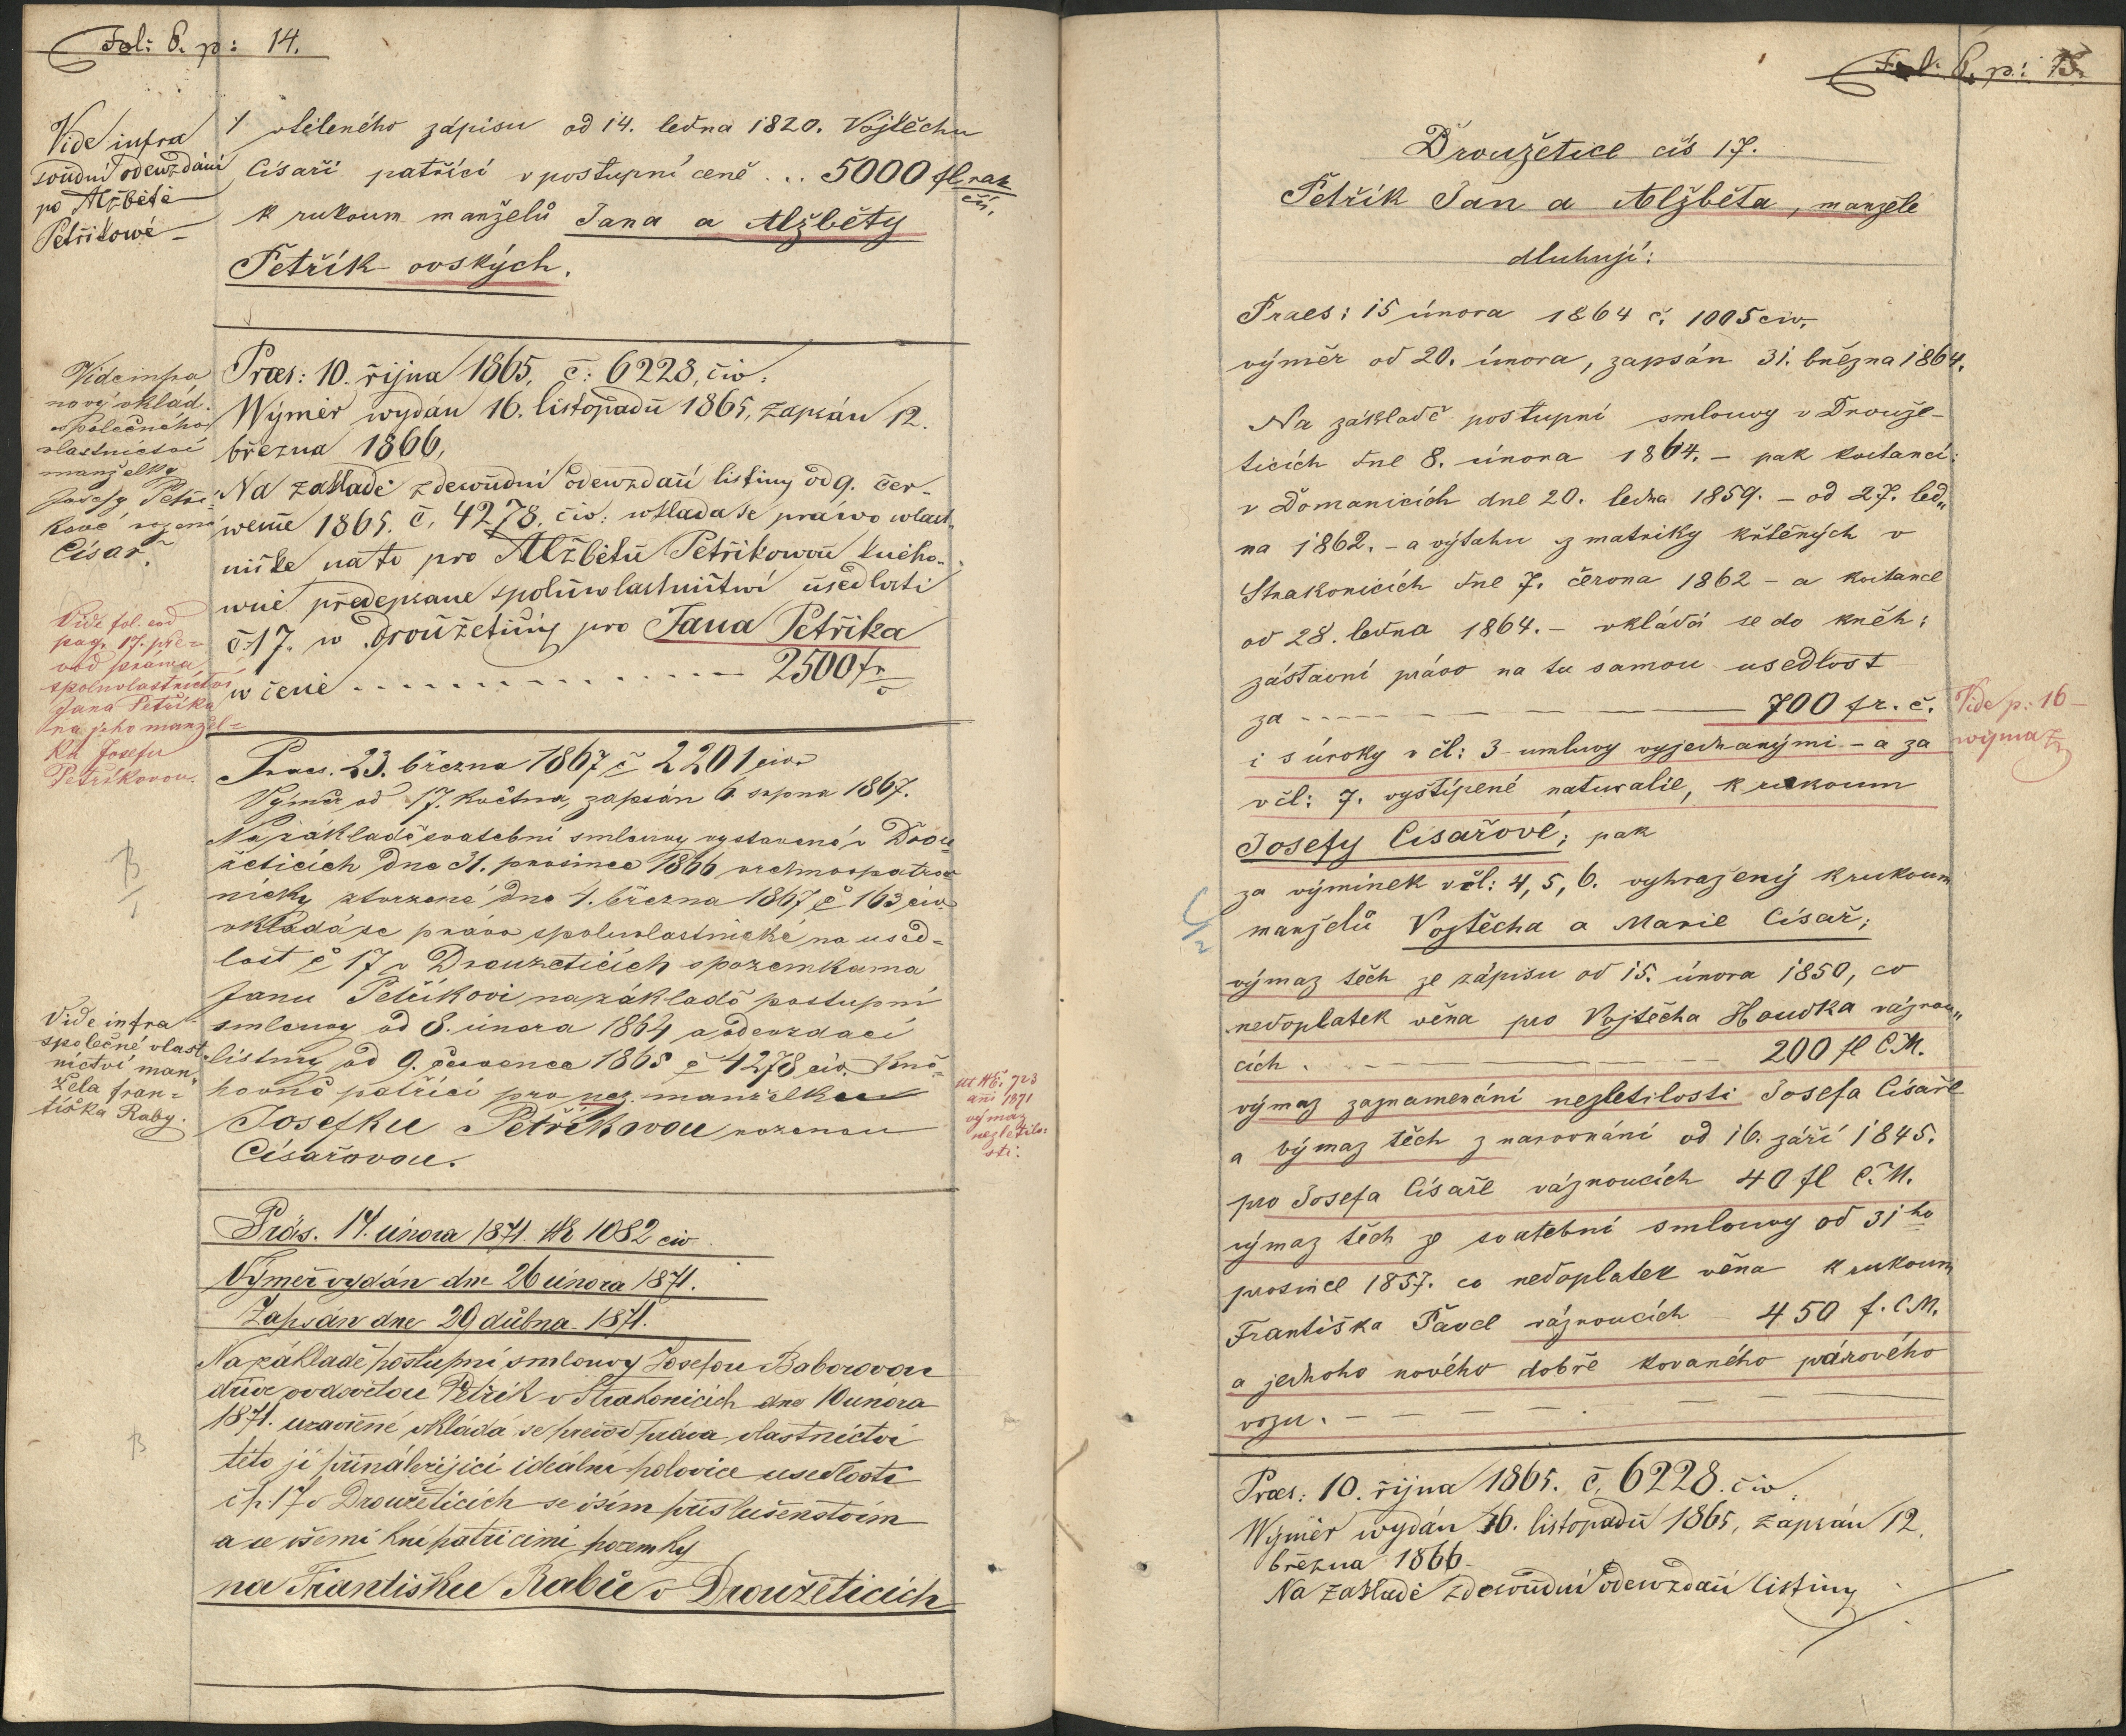 Fol: 6. p: 14.
Vide infra
soudní odewzdání
po Alžbětě
Petřikowé
vtěleného zápisu od 14. ledna 1820. Vojtěchu
Císaři patřící v postupní ceně . . 5000 fl rak
čís.
k rukoum manželů Jana a Alžběty
Petřík ovských.
Vide infra
nový vklad
společného
vlastnictví
manželky
Josefy Petří-
kové rozené
Císař.
Præs: 10. října 1865. č: 6228, čiv:
Wýměr wydán 16. listopadu 1865, zapsán 12.
března 1866,
Na základě zdesoudní odewzdaní listiny od 9. čer-
wence 1865. č. 4278. čiv: wkládá se práwo wlast-
nické na to pro Alžbětu Petřikowou knēho-
wně předepsané spoluwlastnictwí usedlosti
č 17. w Droužeticích pro Jana Petřika
w ceně . . . . . . . . . . 2500 fr
Vide fol. eod
pag. 17. pře-
vod práwa
spoluvlastnictví
Jana Petříka
na jeho manžel-
ku Josefu
Petříkovou.
Praes. 23. března 1867 č 2201 civ.
Výměr od 17. května, zapsán 6 srpna 1867.
Na základě svatební smlouvy vystavené v Drou-
žeticích dne 31. prosince 1866 vrchnopatro-
nicky stvrzené dne 4. března 1867 č 163 civ.
vkládá se právo spoluvlastnické na used-
lost č 17 v Droužeticích s pozemkama
Janu Petříkovi na základě postupní
smlouvy od 8. února 1864 a odevzdací
listiny od 9. července 1865 č 4278 civ. knē-
hovně patřící pro nez. manželku
Josefku Petříkovou rozenou
Císařovou.
B
Vide infra
společné vlast-
nictví man-
žela Fran-
tiška Raby.
ut Nč. 723
ani 1871
výmaz
nezletilo-
sti.
Präs. 17. února 1871. Nr 1082 civ
Výměr vydán dne 26 února 1871.
Zapsán dne 29 dubna 1871.
Na základě postupní smlouvy Josefou Baborovou
dříve ovdovělou Petřík v Strakonicích dne 10 února
1871. uzavřené vkládá se převod práva vlastnictví
této jí přináležející ideální polovice usedlosti
č p. 17 v Droužeticích se vším příslušenstvím
a se všemi k ní patřícími pozemky
na Františku Rabu v Droužeticích
B
Fol: 6. p: 15.
Droužetice čís 17.
Petřík Jan a Alžběta, manžele
dluhují:
Praes: 15 února 1864 č. 1005 civ.
výměr od 20. února, zapsán 31. března 1864.
Na základě postupní smlouvy v Drouže-
ticích dne 8. února 1864. – pak kvitancí:
v Domanicích dne 20. ledna 1859. – od 27. led-
na 1862. – a výtahu z matriky křtěných v
Strakonicích dne 7. června 1862 – a kvitance
od 28. ledna 1864. – vkládá se do knēh:
zástavní právo na tu samou usedlost
za - - - - - 700 fr. č.
i s úroky v čl: 3 umluvy vyjednanými – a za
v čl: 7. vystípené naturalie, k rukoum
Josefy Císařové; pak
za výminek v čl: 4, 5, 6. vyhražený k rukoum
manželů Vojtěcha a Marie Císař;
výmaz těch ze zápisu od 15. února 1850, co
nedoplatek věna pro Vojtěcha Houdka váznou-
cích. - - - - 200 fl C.M.
výmaz zaznamenání nezletilosti Josefa Císaře
a výmaz těch z narovnání od 16. září 1845.
pro Josefa Císaře váznoucích 40 fl C.M.
výmaz těch ze svatební smlouvy od 31ho
prosince 1857. co nedoplatek věna k rukoum
Františka Pavel váznoucích 450 f. C.M.
a jednoho nového dobře kovaného párového
vozu. - - - -
Vide p: 16
wýmaz
Præs: 10. října 1865. č. 6228. čiv.
Wýměr wydán 16. listopadu 1865, zapsán 12.
března 1866
Na základě zdesoudní odewzdaní listiny